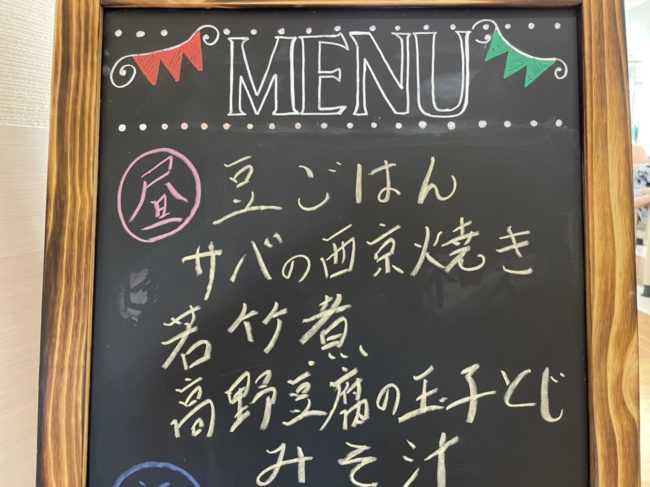 MENU
昼 豆ごはん
サバの西京焼き
若竹煮
高野豆腐の玉子とじ
みそ汁